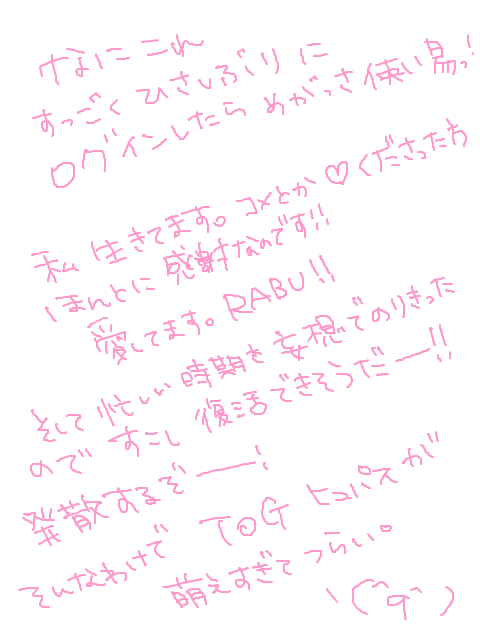 なにこれ
すっごくひさしぶりに
ログインしたらめがっさ使い易っ!
私生きてます。コメとか♡くださった方
ほんとに感謝なのです!!
愛してます。RABU!!
そして忙しい時期を妄想でのりきった
のですこし復活できそうだー!!
発散するぞー!
そんなわけで TOG ヒュパスが
萌えすぎてつらい。
ヽ(^q^)